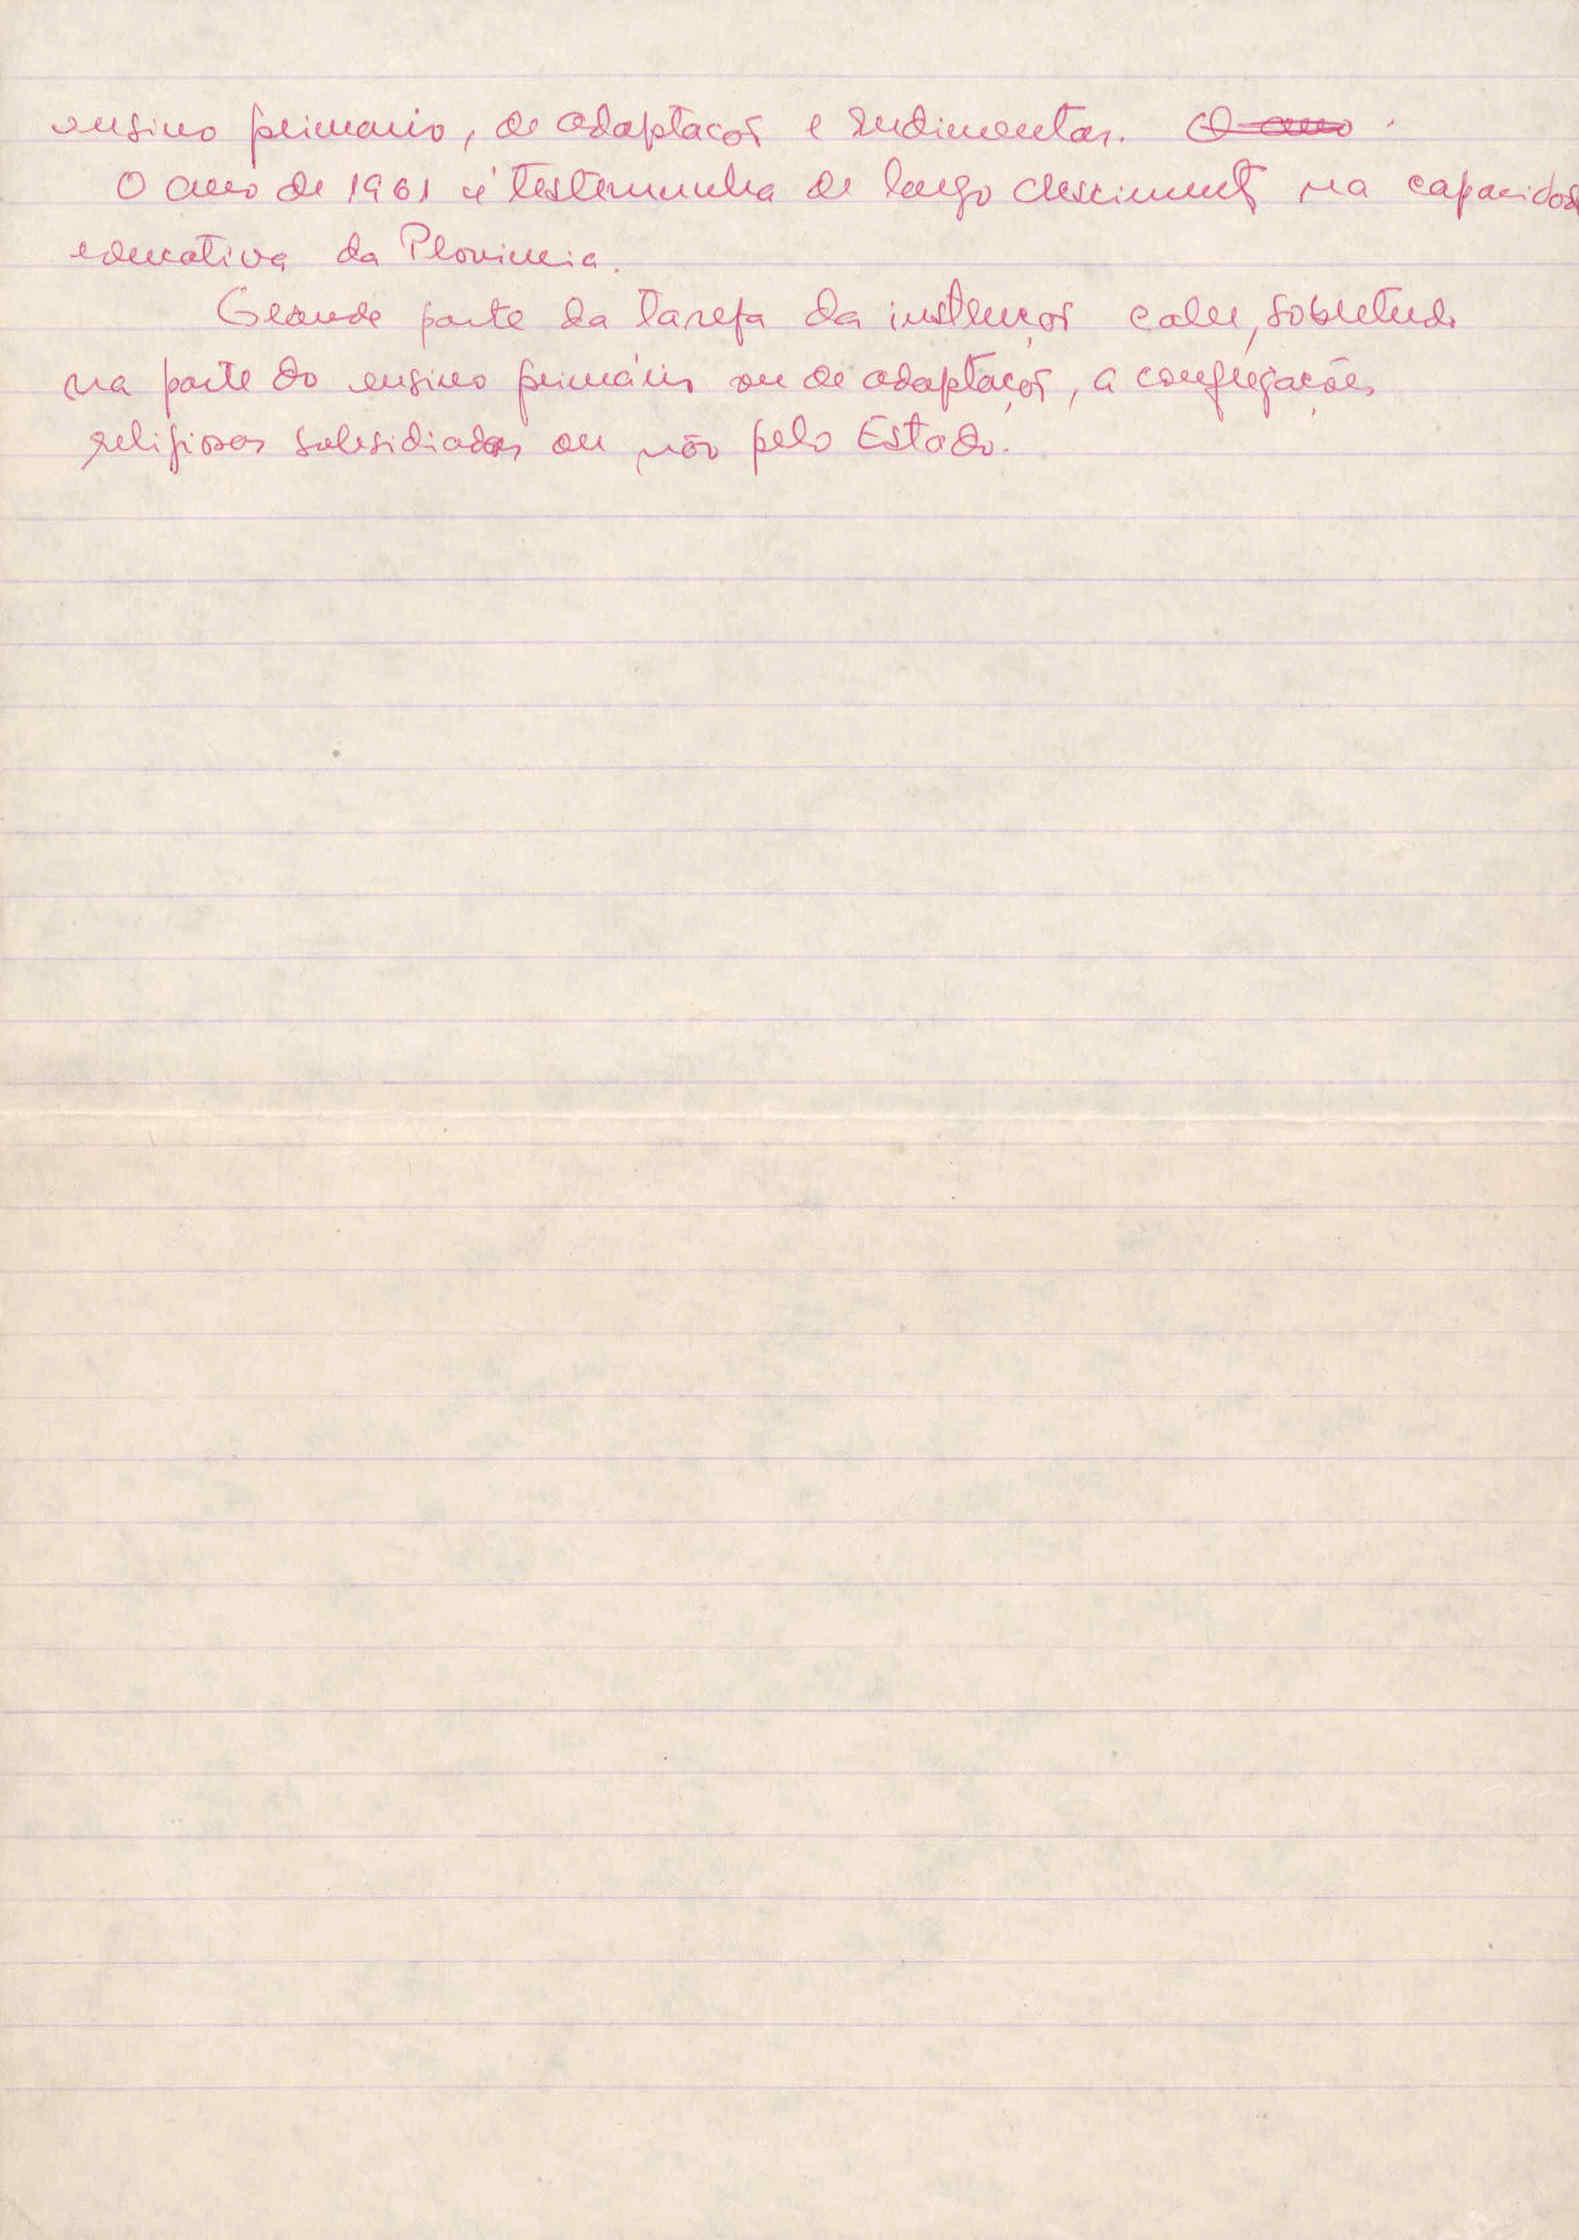 ensino primario, de adaptação e rudimentar. O ano.
O ano de 1961 é testemunha de largo crescimento na capacidade
educativa da Provincia.
Grande parte da tarefa da instrução cabe, sobretudo
na parte do ensino primário ou de adaptação, a congregações
religiosas subsidiadas ou não pelo Estado.